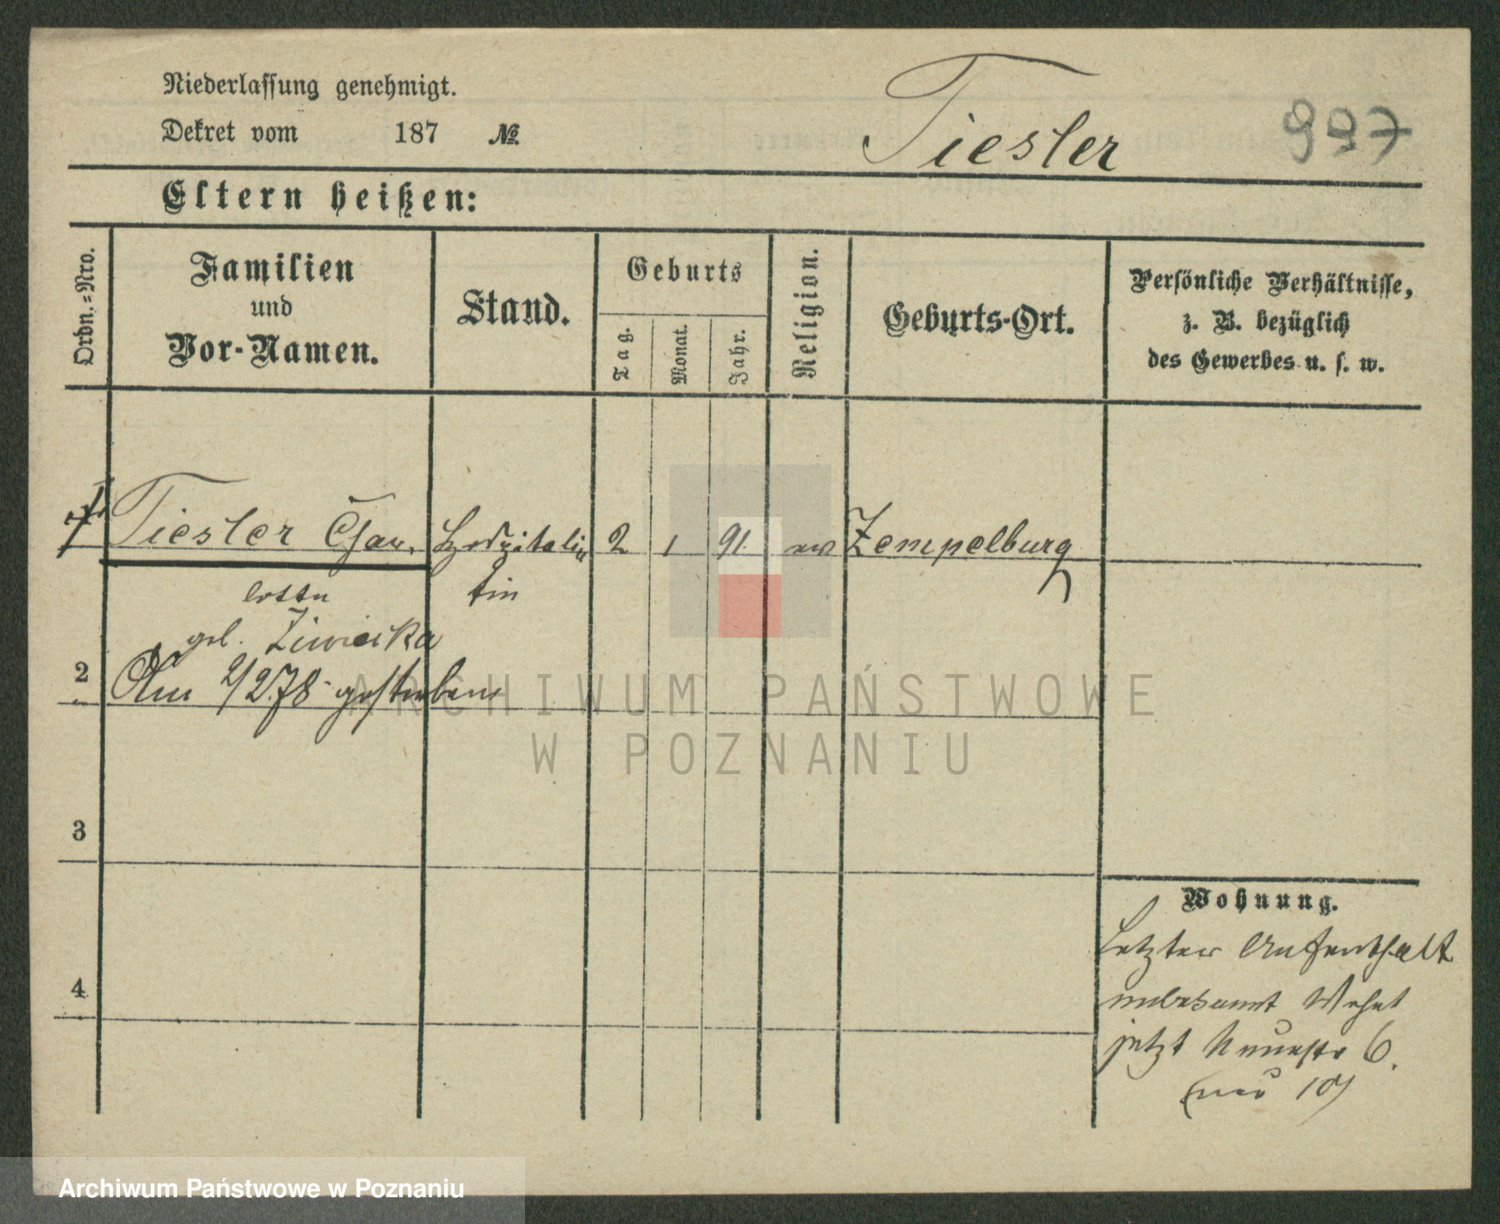 Niederlassung genehmigt.
Dekret vom 187 №
Tiesler 997
Eltern heißen:
Ordn.-Nro.
Familien
und
Vor-Namen.
Stand.
Geburts
Tag.
Monat.
Jahr.
Religion.
Geburts-Ort.
Persönliche Verhältnisse,
z. B. bezüglich
des Gewerbes u. s. w.
Tiesler Char. Hospitalin 2 1 91. ev Zempelburg
lotte tin
geb.
2 Am 2/2.78 gestorben
ARCHIWUM PAŃSTWOWE
W POZNANIU
3
4
Wohnung.
Letzter Aufenthalt
unbekannt Wohnt
jetzt Neuestr 6.
(neu 10)
Archiwum Państwowe w Poznaniu